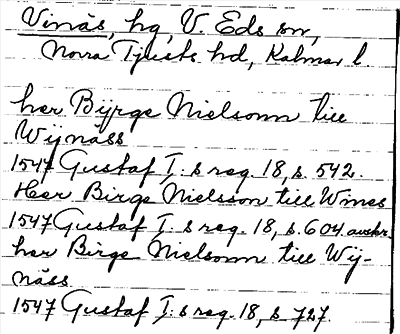 Vinäs, hg, V. Eds sn,
Norra Tjusts hd, Kalmar l.
her Byrge Nielsonn till
Wijnäss
1547 Gustaf I:s reg. 18, s. 542.
Her Birge Nielsson till Wines
1547 Gustaf I:s reg. 18, s. 604 avskr.
her Birge Nielsonn till Wij-
näss
1547 Gustaf I:s reg. 18, s 727.